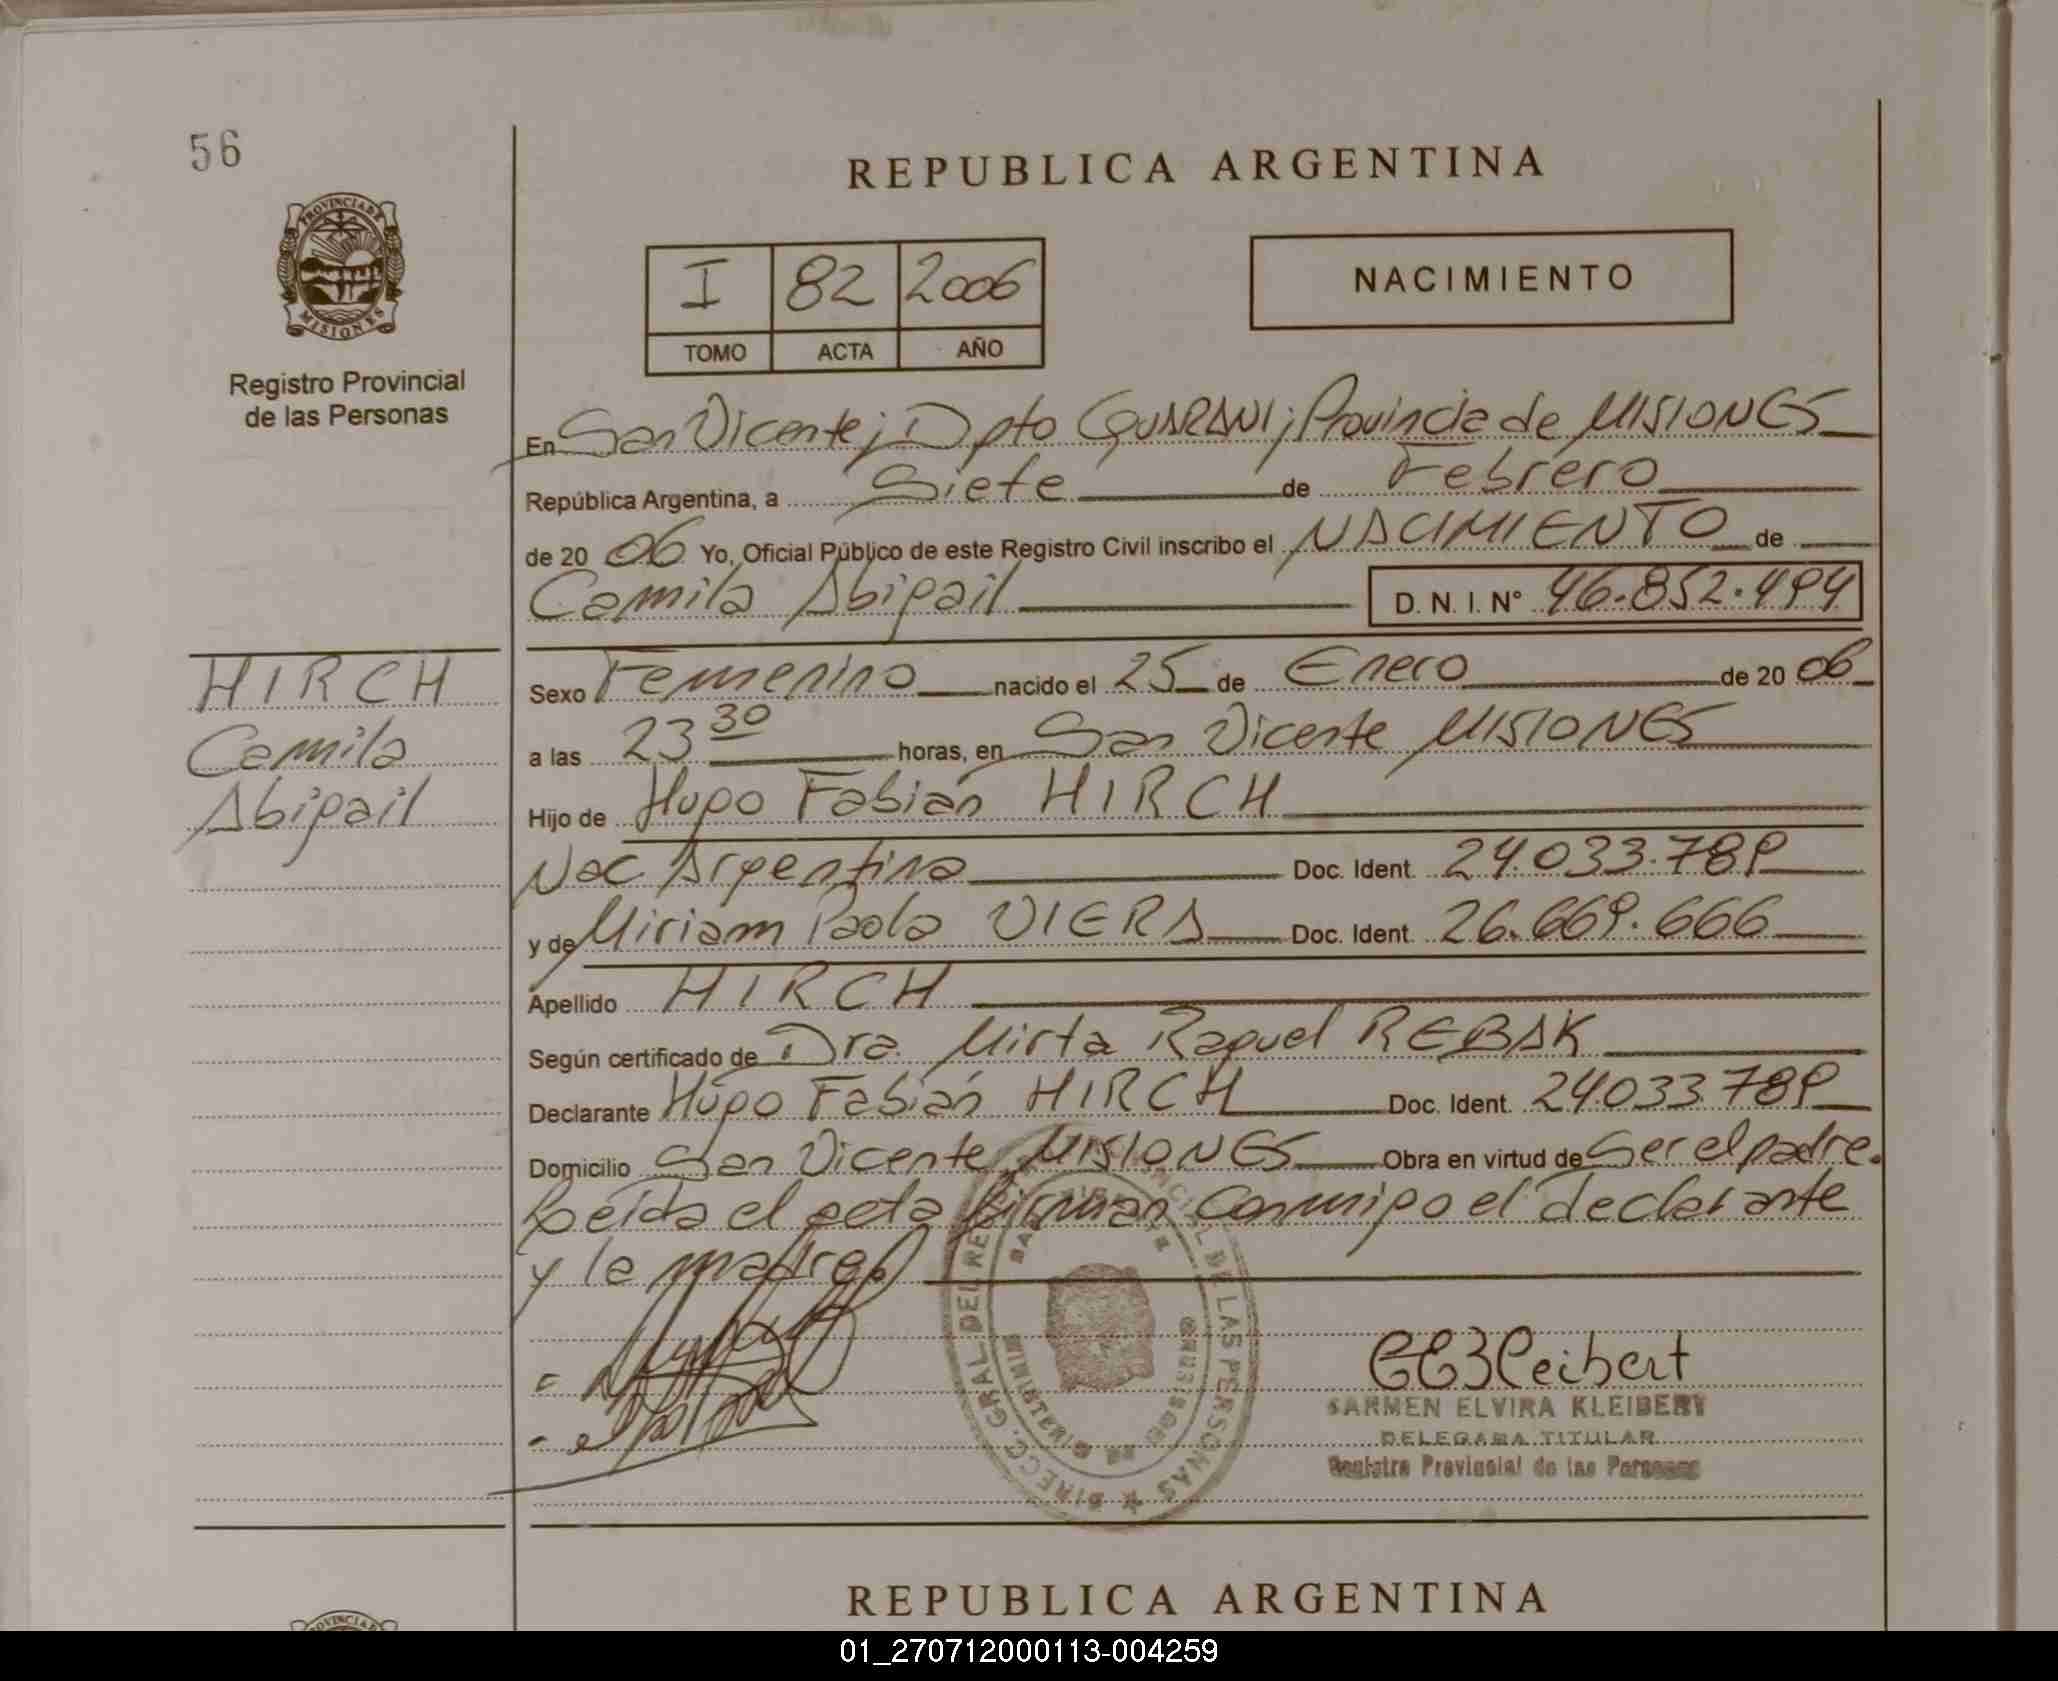 56
REPUBLICA ARGENTINA
PROVINCIA DE
MISIONES
I 82 2006
TOMO ACTA AÑO
NACIMIENTO
Registro Provincial
de las Personas
En San Vicente; Dpto GUARANI; Provincia de MISIONES
República Argentina, a Siete de Febrero
de 20 06 Yo, Oficial Público de este Registro Civil inscribo el NACIMIENTO de
Camila Abigail D. N. I. Nº 46.852.494
HIRCH
Camila
Abigail
Sexo Femenino nacido el 25 de Enero de 20 06
a las 23 30 horas, en San Vicente MISIONES
Hijo de Hugo Fabián HIRCH
Nac Argentina Doc. Ident. 24.033.789
y de Miriam Paola VIERA Doc. Ident. 26.669.666
Apellido HIRCH
Según certificado de Dra. Mirta Raquel REBAK
Declarante Hugo Fabián HIRCH Doc. Ident. 24.033.789
Domicilio San Vicente MISIONES Obra en virtud de Ser el padre.
Leída el acta firman conmigo el declarante
y la madre.
DIRECC. GRAL. DEL REG. PROVINCIAL DE LAS PERSONAS
SAN VICENTE
MINISTERIO DE GOBIERNO
CEKleibert
CARMEN ELVIRA KLEIBERT
DELEGADA TITULAR
Registro Provincial de las Personas
REPUBLICA ARGENTINA
PROVINCIA DE
01_270712000113-004259